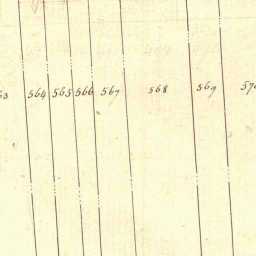 564 565 566 567 568 569